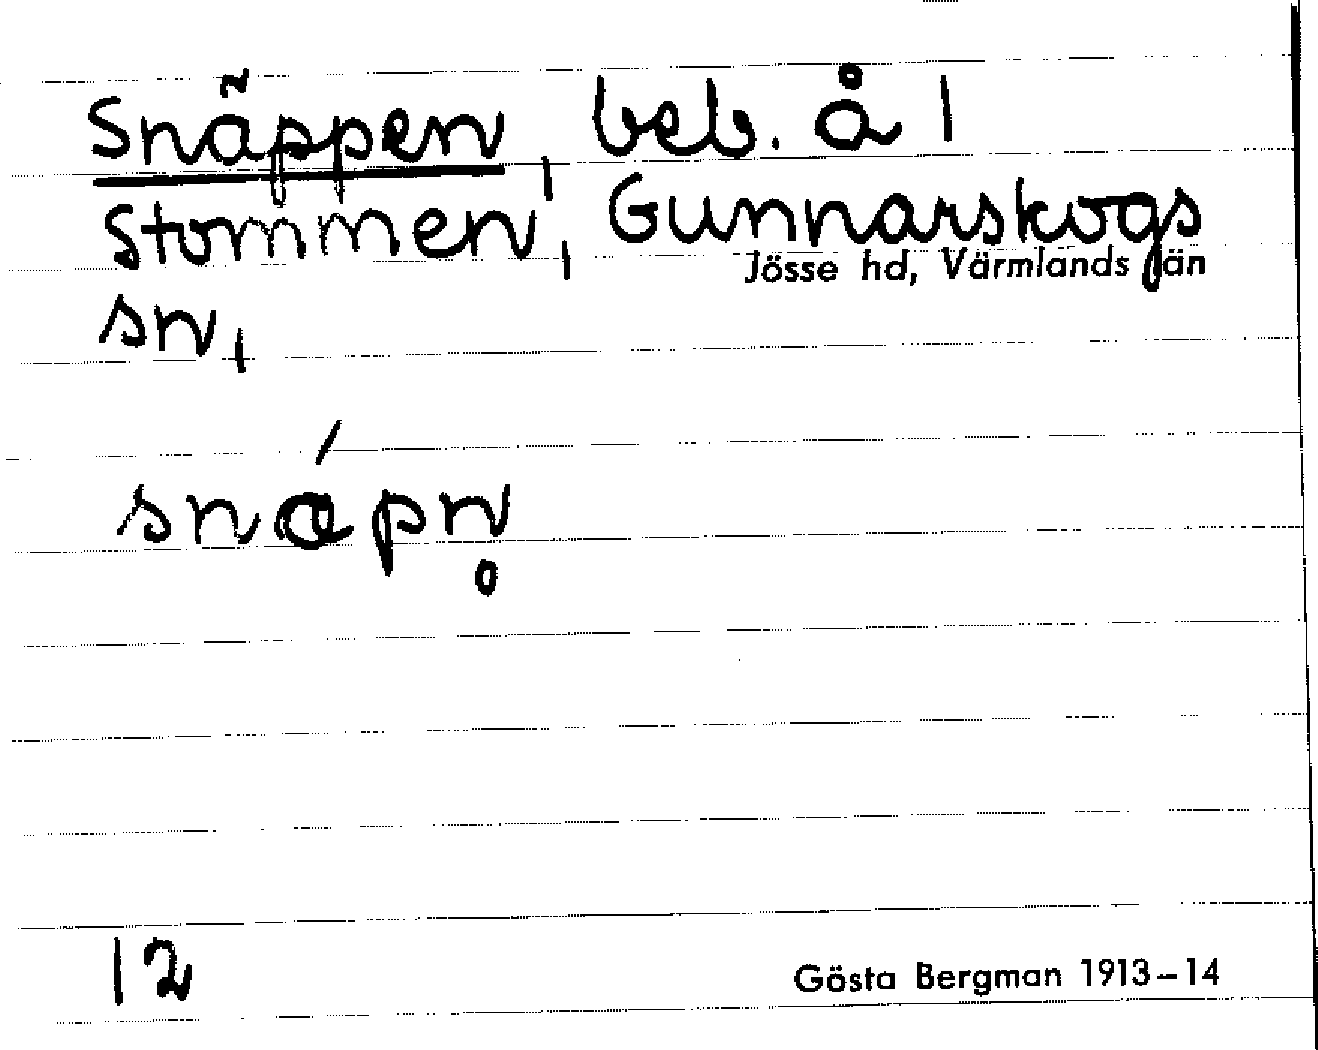 Snäppen, beb. å 1
Stommen, Gunnarskogs
Jösse hd, Värmlands län
sn,
snápn̥
12
Gösta Bergman 1913–14